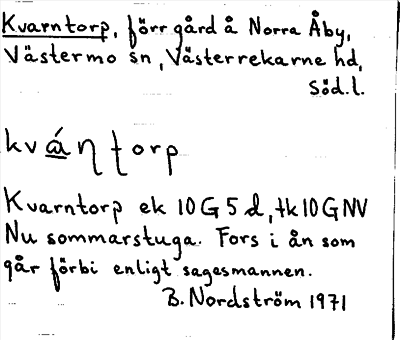 Kvarntorp, förr gård å Norra Åby,
Västermo sn, Västerrekarne hd,
Söd.l.
kvántorp
Kvarntorp ek 10G5d, tk10GNV
Nu sommarstuga. Fors i ån som
går förbi enligt sagesmannen.
B. Nordström 1971